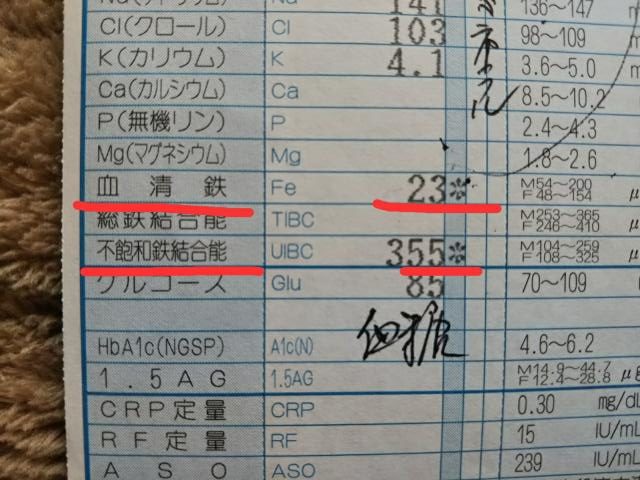 141 136~147
Cl(クロール) Cl 103 98~109
K(カリウム) K 4.1 3.6~5.0
Ca(カルシウム) Ca 8.5~10.2
P(無機リン) P 2.4~4.3
Mg(マグネシウム) Mg 1.8~2.6
血清鉄 Fe 23* M54~200 F48~154
総鉄結合能 TIBC M253~365 F246~410
不飽和鉄結合能 UIBC 355* M104~259 F108~325
グルコース Glu 85 70~109
血糖
HbA1c(NGSP) A1c(N) 4.6~6.2
1.5AG 1.5AG M14.9~44.7 F12.4~28.8 μg
CRP定量 CRP 0.30 mg/dL
RF定量 RF 15 IU/mL
ASO ASO 239 IU/mL